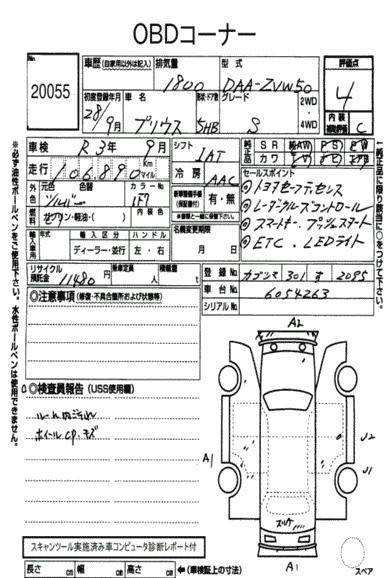 OBDコーナー
No.
20055
車歴(自家用以外は記入)
排気量
型式
評価点
1800
DAA-ZVW50
4
初度登録年月
車名
形状・ドア数
グレード
2WD
4WD
28/9月
プリウス
5HB
S
内装
補助評価
C
車検
R3年9月
シフト
IAT
純正品
SR
AW
PS
PW
カワ
TV
ナビ
エアB
走行
106,890
Km
マイル
冷房
AAC
セールスポイント
外色
元色
色替
カラーNo.
シルバー
1F7
◎トヨタセーフティセンス
◎レーダークルーズコントロール
◎スマートキー、プッシュスタート
◎ETC、LEDライト
燃料
ガソリン・軽油・( )
内装色
新車整備手帳
(保証書付)
有・無
※積極的に記入して下さい
名義変更期限
月 日
輸入車
年式
輸入区分
ハンドル
ディーラー・並行
左・右
リサイクル
預託金
11480円
乗車定員
人
積載量
t
登録No.
301 す 2095
車台No.
6054263
シリアルNo.
◎注意事項(修復・不具合箇所および状態等)
◎検査員報告(USS使用欄)
ルーム内汚れ
ホイールCP、キズ
A2
A1
U2
U1
A1
スペア
スキャンツール実施済み車コンピュータ診断レポート付
長さ cm 幅 cm 高さ cm ←(車検証上の寸法)
※必ず油性ボールペンをご使用下さい。水性ボールペンは使用できません。
純正品に限り該当に○をつけて下さい